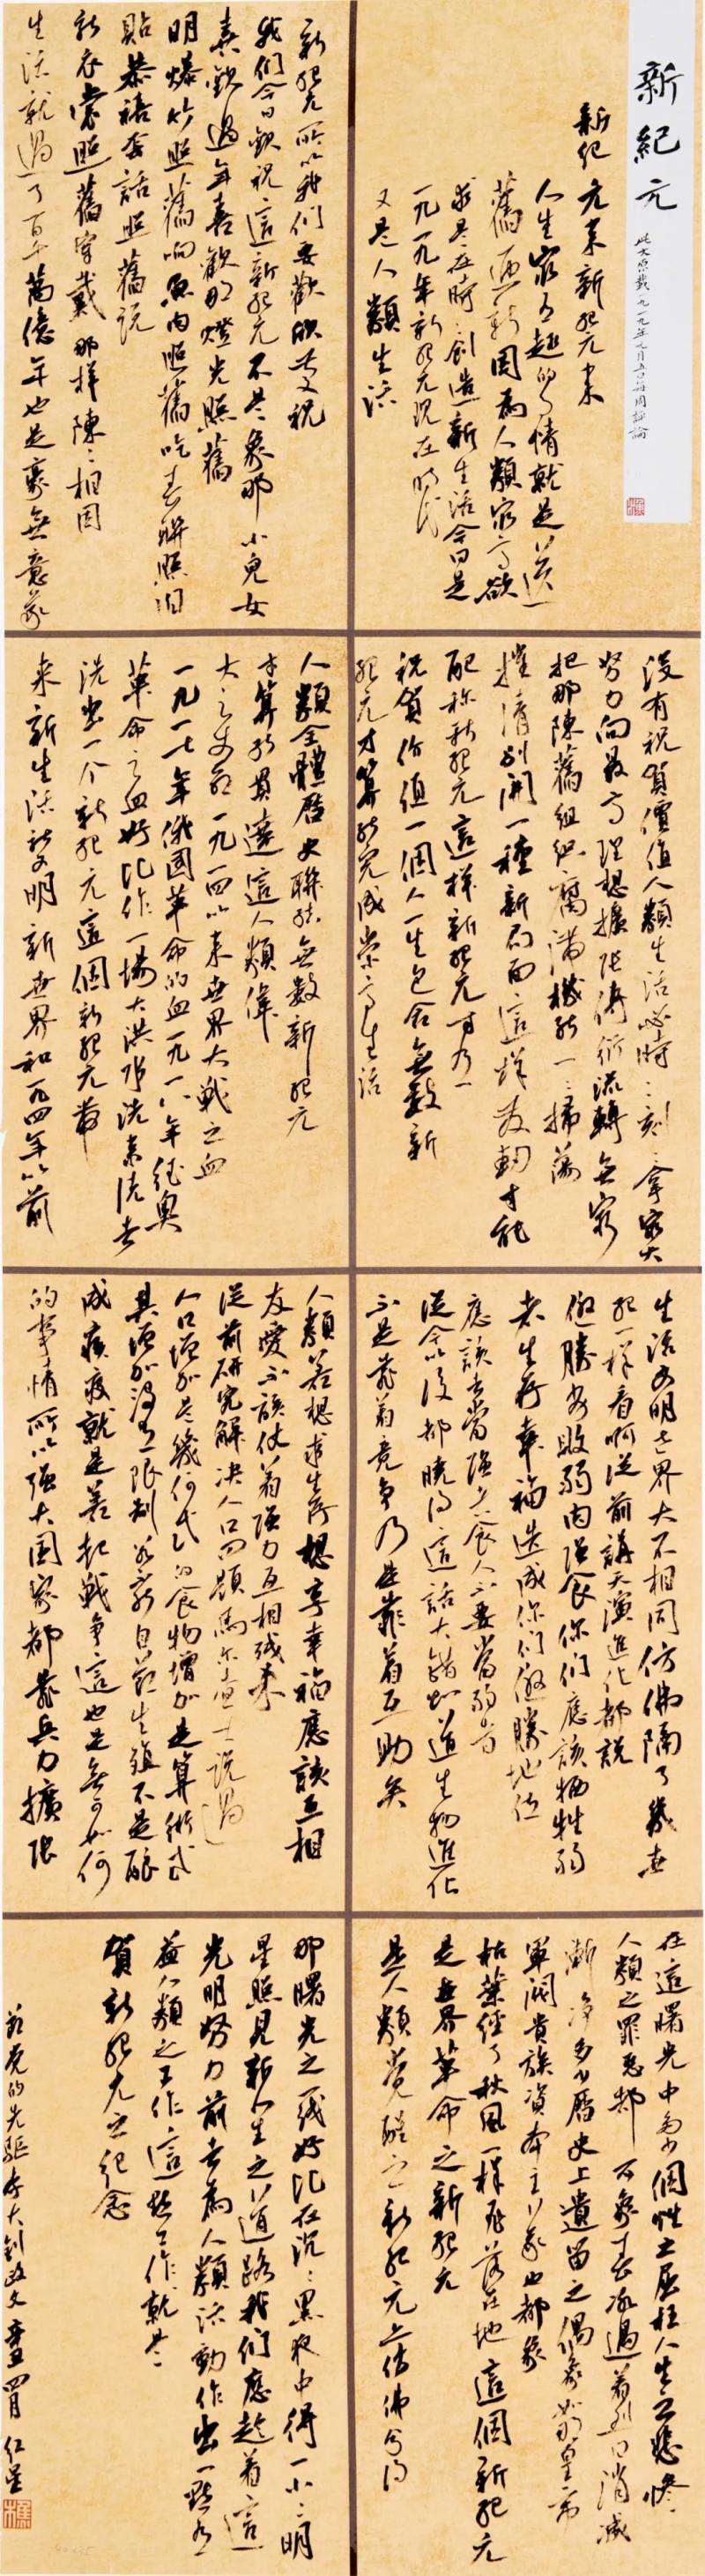 新紀元
此文原載一九一九年元月五日每周評論
新纪元来新纪元来
人生最有趣的事情就是送
舊迎新因為人類最高欲
求是在時〻創造新生活今日是
一九一九年新纪元現在時代
又是人類生活
新纪元所以我们要歡欣慶祝
我们今日歡祝這新纪元不是象那小兒女
喜歡過年喜歡那燈光照舊
明爆竹照舊响魚肉照舊吃春聯照旧
貼恭禧套話照舊説
新衣裳照舊穿戴那样陳〻相因
生活就過了百千萬億年也是毫無意義
没有祝賀價值人類生活必時〻刻〻拿最大
努力向最高理想擴張傳衍流轉無窮
把那陳舊組织腐滞機能一〻掃蕩
摧清别開一種新局面這様發軔才能
配称新纪元這様新纪元才有
祝賀價值一個人一生包含無數新
纪元才算能完成崇高生活
人類全體歷史聯결無數新纪元
才算能貫達這人類偉
大之使命一九一四以来世界大戰之血
一九一七年俄國革命的血一九一八年德奥
革命之血好比作一場大洪水洗来洗去
洗出一个新纪元這個新纪元带
来新生活新文明新世界和一九一四年以前
生活文明世界大不相同仿佛隔了幾世
纪一样看啊從前講天演進化都説
優勝劣敗弱肉强食你们應該犧牲弱
者生存幸福造成你们優勝地位
應該去當强者食人不要當弱者
從今以後都曉得這話大錯知道生物進化
不是靠着竞争乃是靠着互助矣
人類若想求生存想享幸福應該互相
友愛不該仗着强力互相残杀
從前研究解决人口问題馬尔查士説過
人口增加是幾何式的食物增加是算術式
其增加没有限制
成疾疫就是若起戰争這也是無可如何
的事情所以强大國家都靠兵力擴張
在這曙光中多少個性之屈枉人生之悲惨
人類之罪惡都可象春冰遇着烈日消滅
漸净多少歷史上遺留之偶象如那皇帝
軍閥貴族資本主义也都象
枯葉經了秋風一样飛落在地這個新纪元
是世界革命之新纪元
是人類覺醒之新纪元
那曙光之一线好比在沉〻黑夜中得一小〻明
星照見新人生之道路我们應趁着這
光明努力前去為人類活動作出一點有
益人類之工作這點工作就是
賀新纪元之纪念